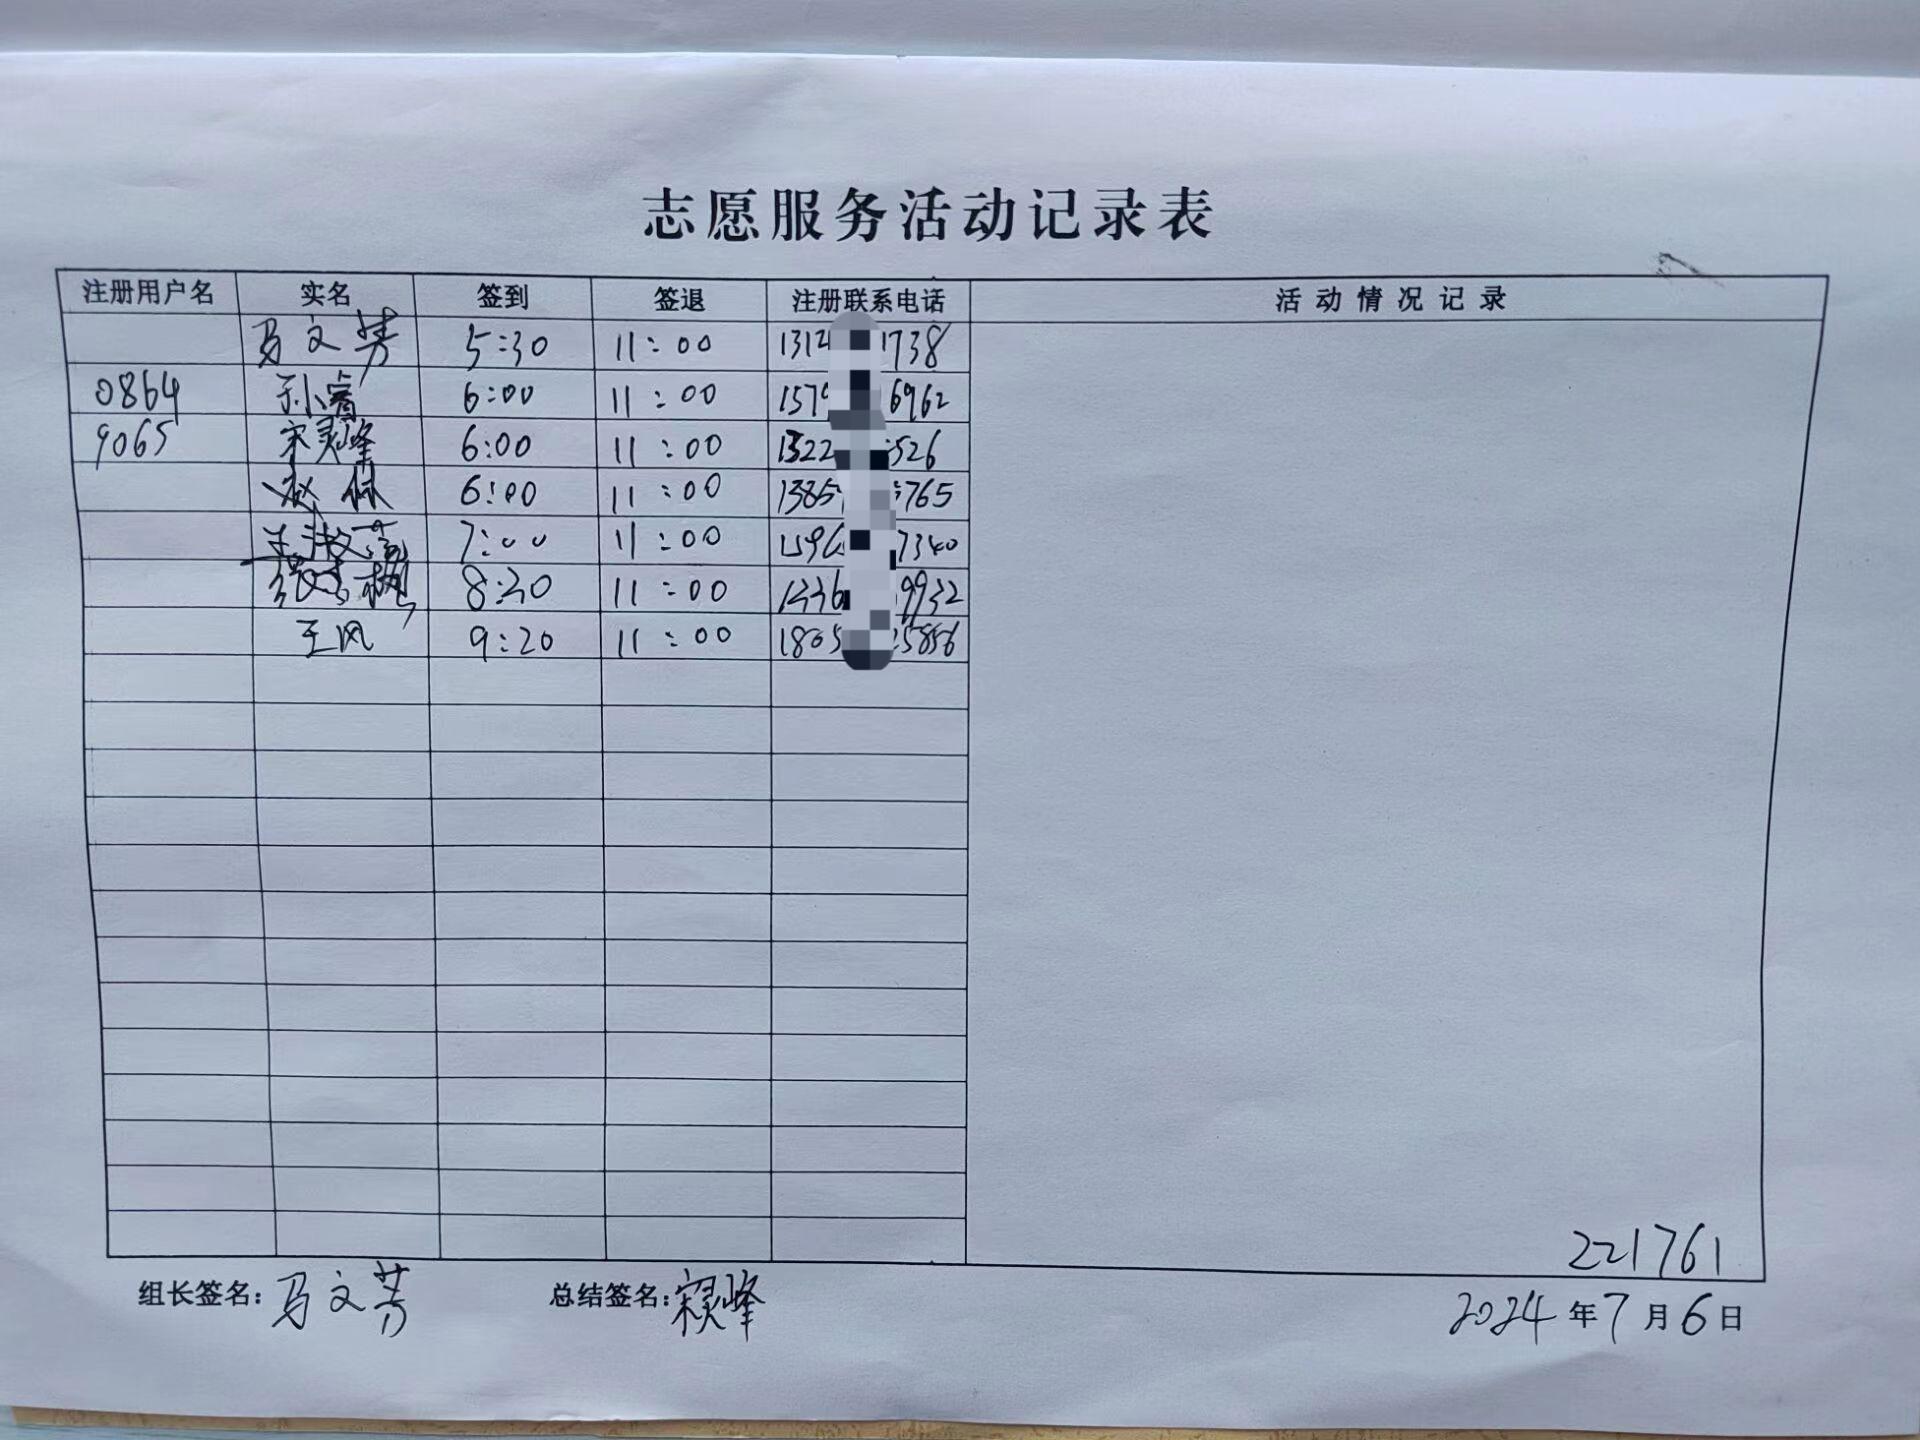 志愿服务活动记录表
注册用户名 实名 签到 签退 注册联系电话 活动情况记录
马文芳 5:30 11:00 1312 1738
0864 孙睿 6:00 11:00 157 6962
9065 宋灵峰 6:00 11:00 1322 526
赵林 6:00 11:00 1385 765
7:00 11:00 1596 7340
8:20 11:00 1336 9932
王风 9:20 11:00 1805 5856
221761
组长签名：马文芳 总结签名：宋灵峰
2024年7月6日